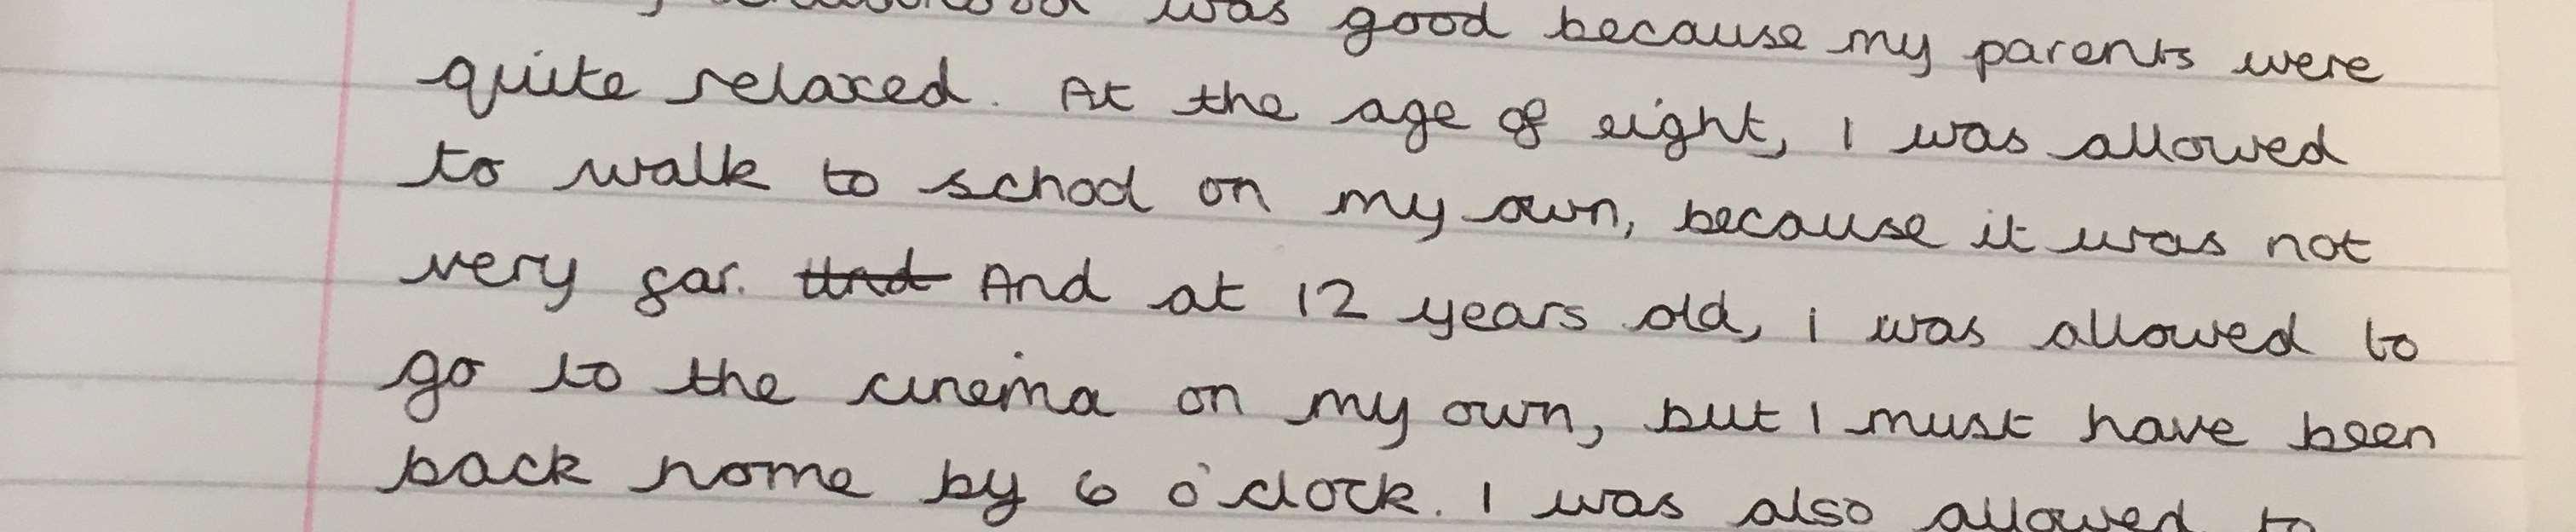 childhood was good because my parents were
quite relaxed. At the age of eight, I was allowed
to walk to school on my own, because it was not
very far. And at 12 years old, I was allowed to
go to the cinema on my own, but I must have been
back home by 6 o'clock. I was also allowed to